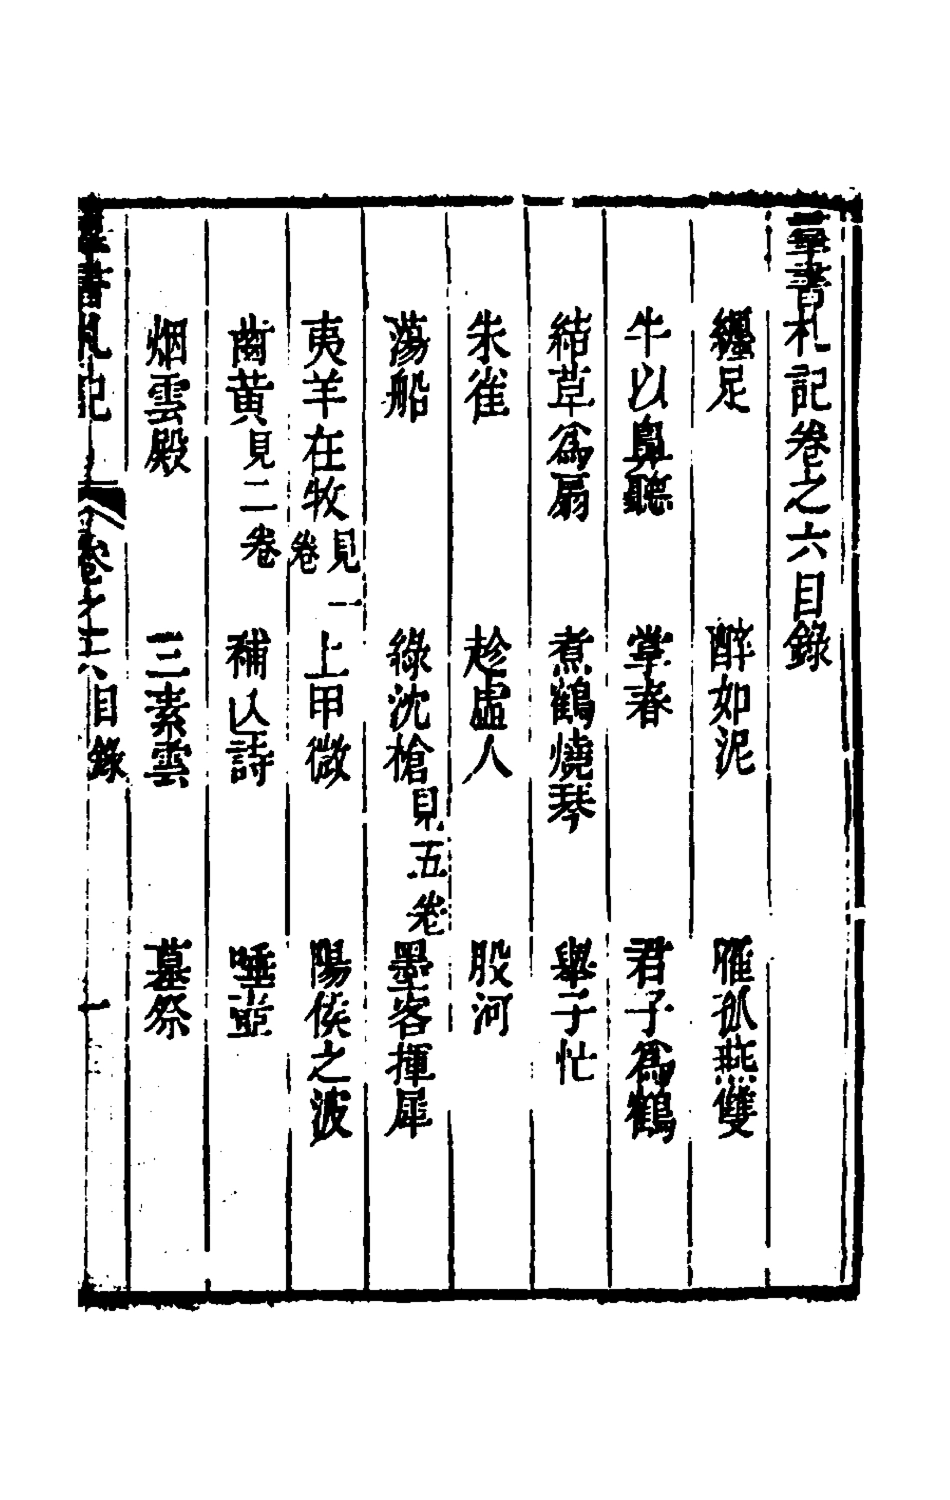 羣書札記卷之六目錄
纏足 醉如泥 雁孤燕雙
牛以鼻聽 掌春 君子爲鶴
結草爲扇 煮鶴燒琴 舉子忙
朱雀 趁虛人 股河
蕩船 綠沈槍見五卷 墨客揮犀
夷羊在牧見一卷 上甲微 陽侯之波
崗黃見二卷 補亾詩 唾壺
烟雲殿 三素雲 墓祭
羣書札記 卷之六目錄 一